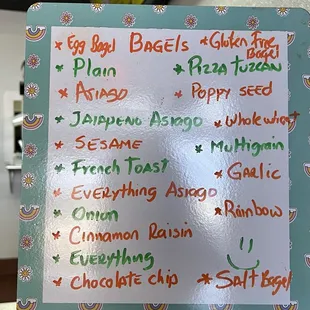 * Egg Bagel BAGELS * Gluten Free Bagel
* Plain
* PIZZA TUZCAN
* ASIAGO
* POPPY SEED
* JALAPENO ASIAGO
* Whole wheat
* SESAME
* Multigrain
* French TOAST
* GARLIC
* EVERYTHING ASIAGO
* Onion
* Rainbow
* Cinnamon Raisin
* EVERYTHING
* Chocolate chip
* SALT Bagel